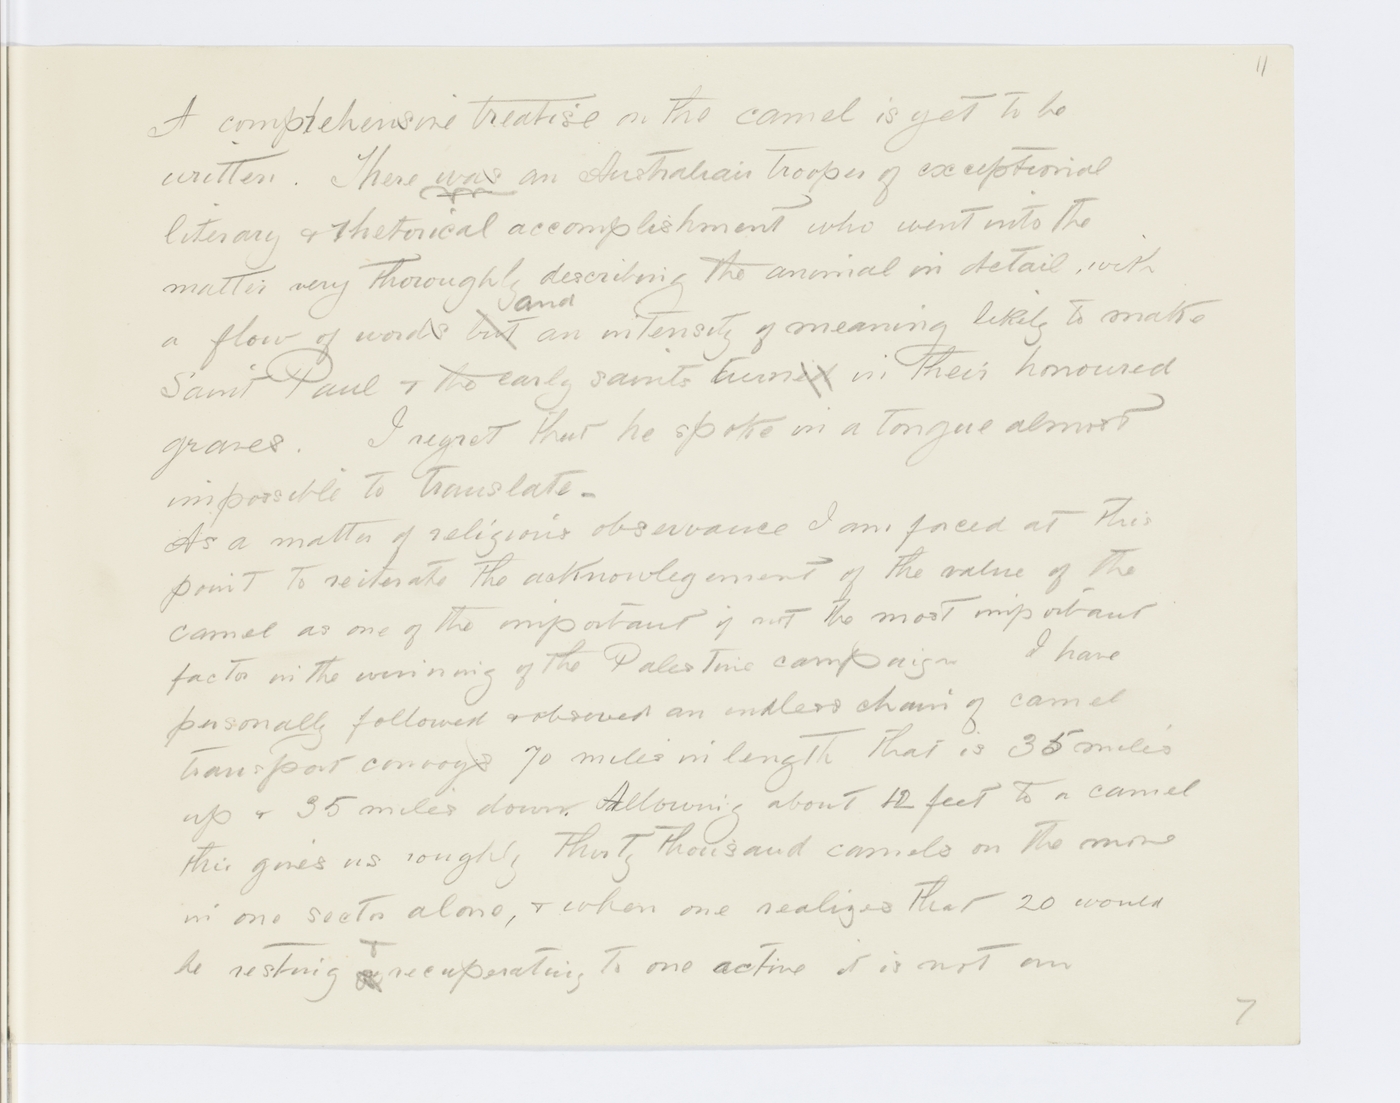 11
A comprehensive treatise on the camel is yet to be
written. There was an Australian trooper of exceptional
literary & rhetorical accomplishment who went into the
matter very thoroughly describing the animal in detail, with
and
a flow of words but an intensity of meaning likely to make
Saint Paul & the early saints turned in their honoured
graves. I regret that he spoke in a tongue almost
impossible to translate.
As a matter of religious observance I am forced at this
point to reiterate the acknowlegement of the value of the
camel as one of the important if not the most important
factor in the winning of the Palestine campaign I have
personally followed & observed an endless chain of camel
transport convoys 70 miles in length that is 35 miles
up & 35 miles down. Allowing about 12 feet to a camel
this gives us roughly thirty thousand camels on the move
in one sector alone, & when one realizes that 20 would
be resting & recuperating to one active it is not an
7